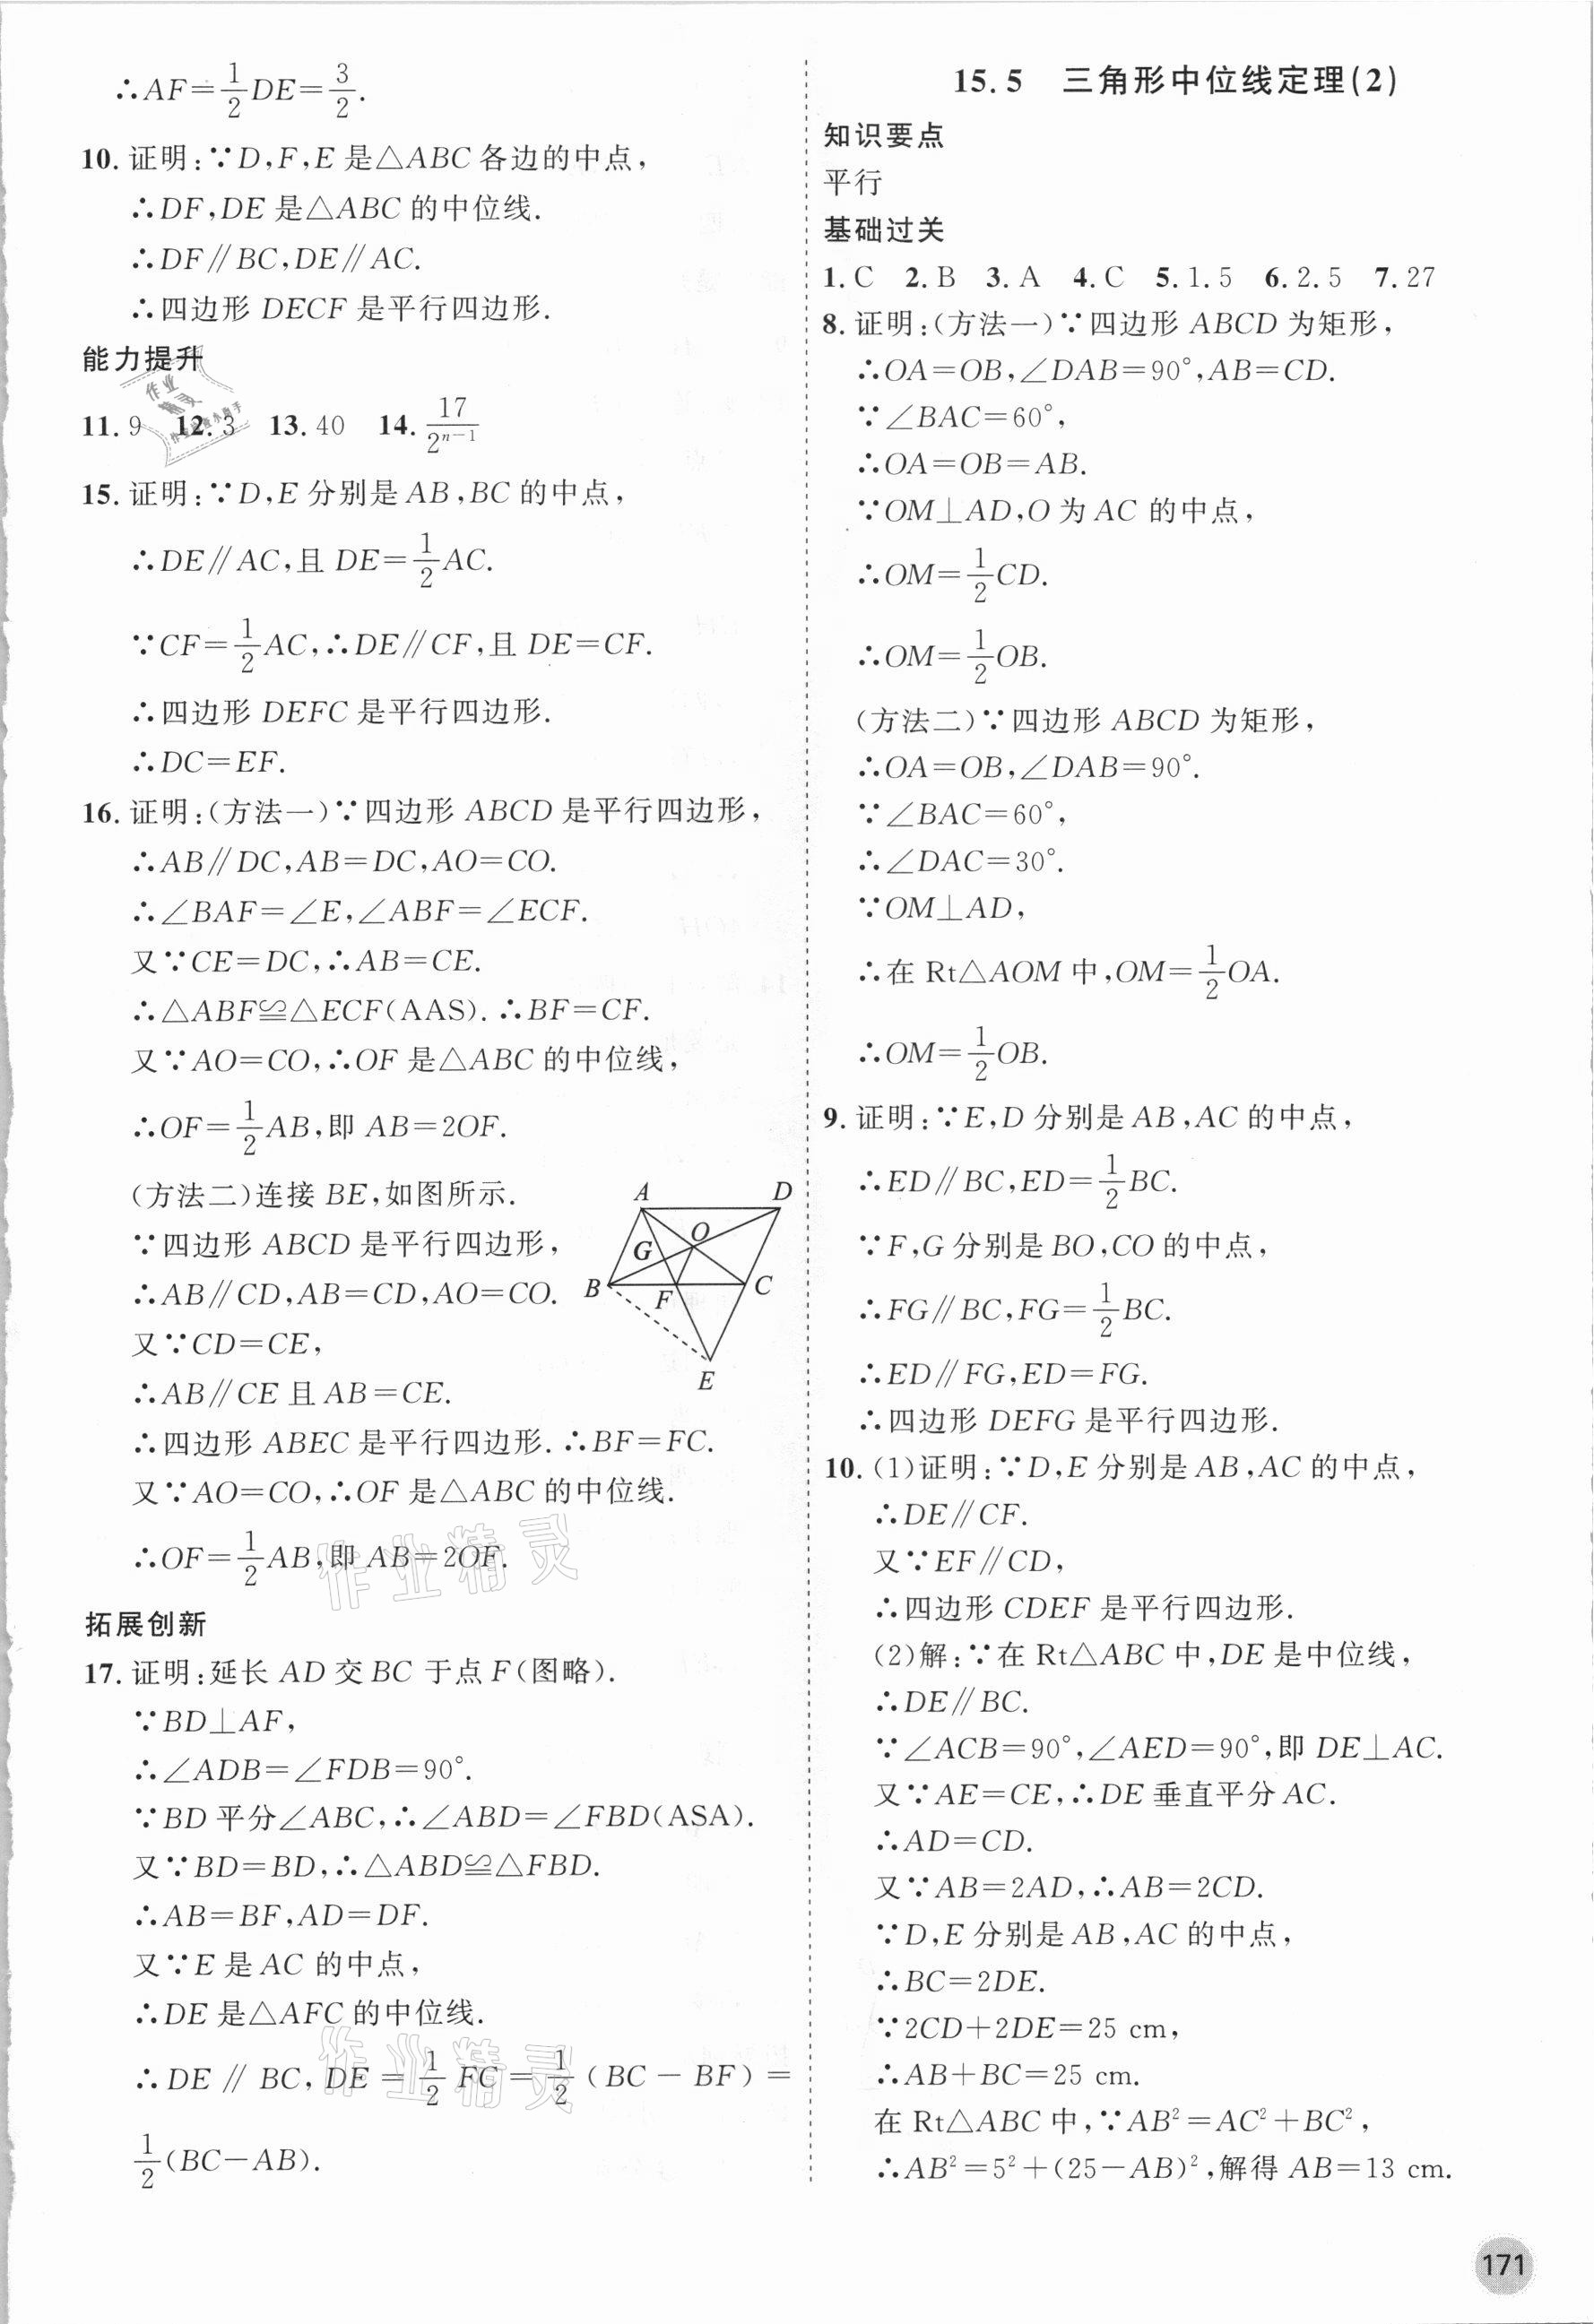 ∴AF=1/2DE=3/2.
10. 证明:∵D,F,E是△ABC各边的中点,
∴DF,DE是△ABC的中位线.
∴DF∥BC,DE∥AC.
∴四边形DECF是平行四边形.
能力提升
11. 9 12. 3 13. 40 14. 17/2ⁿ⁻¹
15. 证明:∵D,E分别是AB,BC的中点,
∴DE∥AC,且DE=1/2AC.
∵CF=1/2AC,∴DE∥CF,且DE=CF.
∴四边形DEFC是平行四边形.
∴DC=EF.
16. 证明:(方法一)∵四边形ABCD是平行四边形,
∴AB∥DC,AB=DC,AO=CO.
∴∠BAF=∠E,∠ABF=∠ECF.
又∵CE=DC,∴AB=CE.
∴△ABF≌△ECF(AAS).∴BF=CF.
又∵AO=CO,∴OF是△ABC的中位线,
∴OF=1/2AB,即AB=2OF.
(方法二)连接BE,如图所示.
∵四边形ABCD是平行四边形,
∴AB∥CD,AB=CD,AO=CO.
又∵CD=CE,
∴AB∥CE且AB=CE.
∴四边形ABEC是平行四边形.∴BF=FC.
又∵AO=CO,∴OF是△ABC的中位线.
∴OF=1/2AB,即AB=2OF.
A D
O
G
B F C
E
作业精灵
拓展创新
17. 证明:延长AD交BC于点F(图略).
∵BD⊥AF,
∴∠ADB=∠FDB=90°.
∵BD平分∠ABC,∴∠ABD=∠FBD(ASA).
又∵BD=BD,∴△ABD≌△FBD.
∴AB=BF,AD=DF.
又∵E是AC的中点,
∴DE是△AFC的中位线.
∴DE∥BC,DE=1/2FC=1/2(BC-BF)=
1/2(BC-AB).
作业精灵
15.5 三角形中位线定理(2)
知识要点
平行
基础过关
1. C 2. B 3. A 4. C 5. 1.5 6. 2.5 7. 27
8. 证明:(方法一)∵四边形ABCD为矩形,
∴OA=OB,∠DAB=90°,AB=CD.
∵∠BAC=60°,
∴OA=OB=AB.
∵OM⊥AD,O为AC的中点,
∴OM=1/2CD.
∴OM=1/2OB.
(方法二)∵四边形ABCD为矩形,
∴OA=OB,∠DAB=90°.
∵∠BAC=60°,
∴∠DAC=30°.
∵OM⊥AD,
∴在Rt△AOM中,OM=1/2OA.
∴OM=1/2OB.
9. 证明:∵E,D分别是AB,AC的中点,
∴ED∥BC,ED=1/2BC.
∵F,G分别是BO,CO的中点,
∴FG∥BC,FG=1/2BC.
∴ED∥FG,ED=FG.
∴四边形DEFG是平行四边形.
10. (1)证明:∵D,E分别是AB,AC的中点,
∴DE∥CF.
又∵EF∥CD,
∴四边形CDEF是平行四边形.
(2)解:∵在Rt△ABC中,DE是中位线,
∴DE∥BC.
∵∠ACB=90°,∠AED=90°,即DE⊥AC.
又∵AE=CE,∴DE垂直平分AC.
∴AD=CD.
又∵AB=2AD,∴AB=2CD.
∵D,E分别是AB,AC的中点,
∴BC=2DE.
∵2CD+2DE=25 cm,
∴AB+BC=25 cm.
在Rt△ABC中,∵AB²=AC²+BC²,
∴AB²=5²+(25-AB)²,解得AB=13 cm.
171